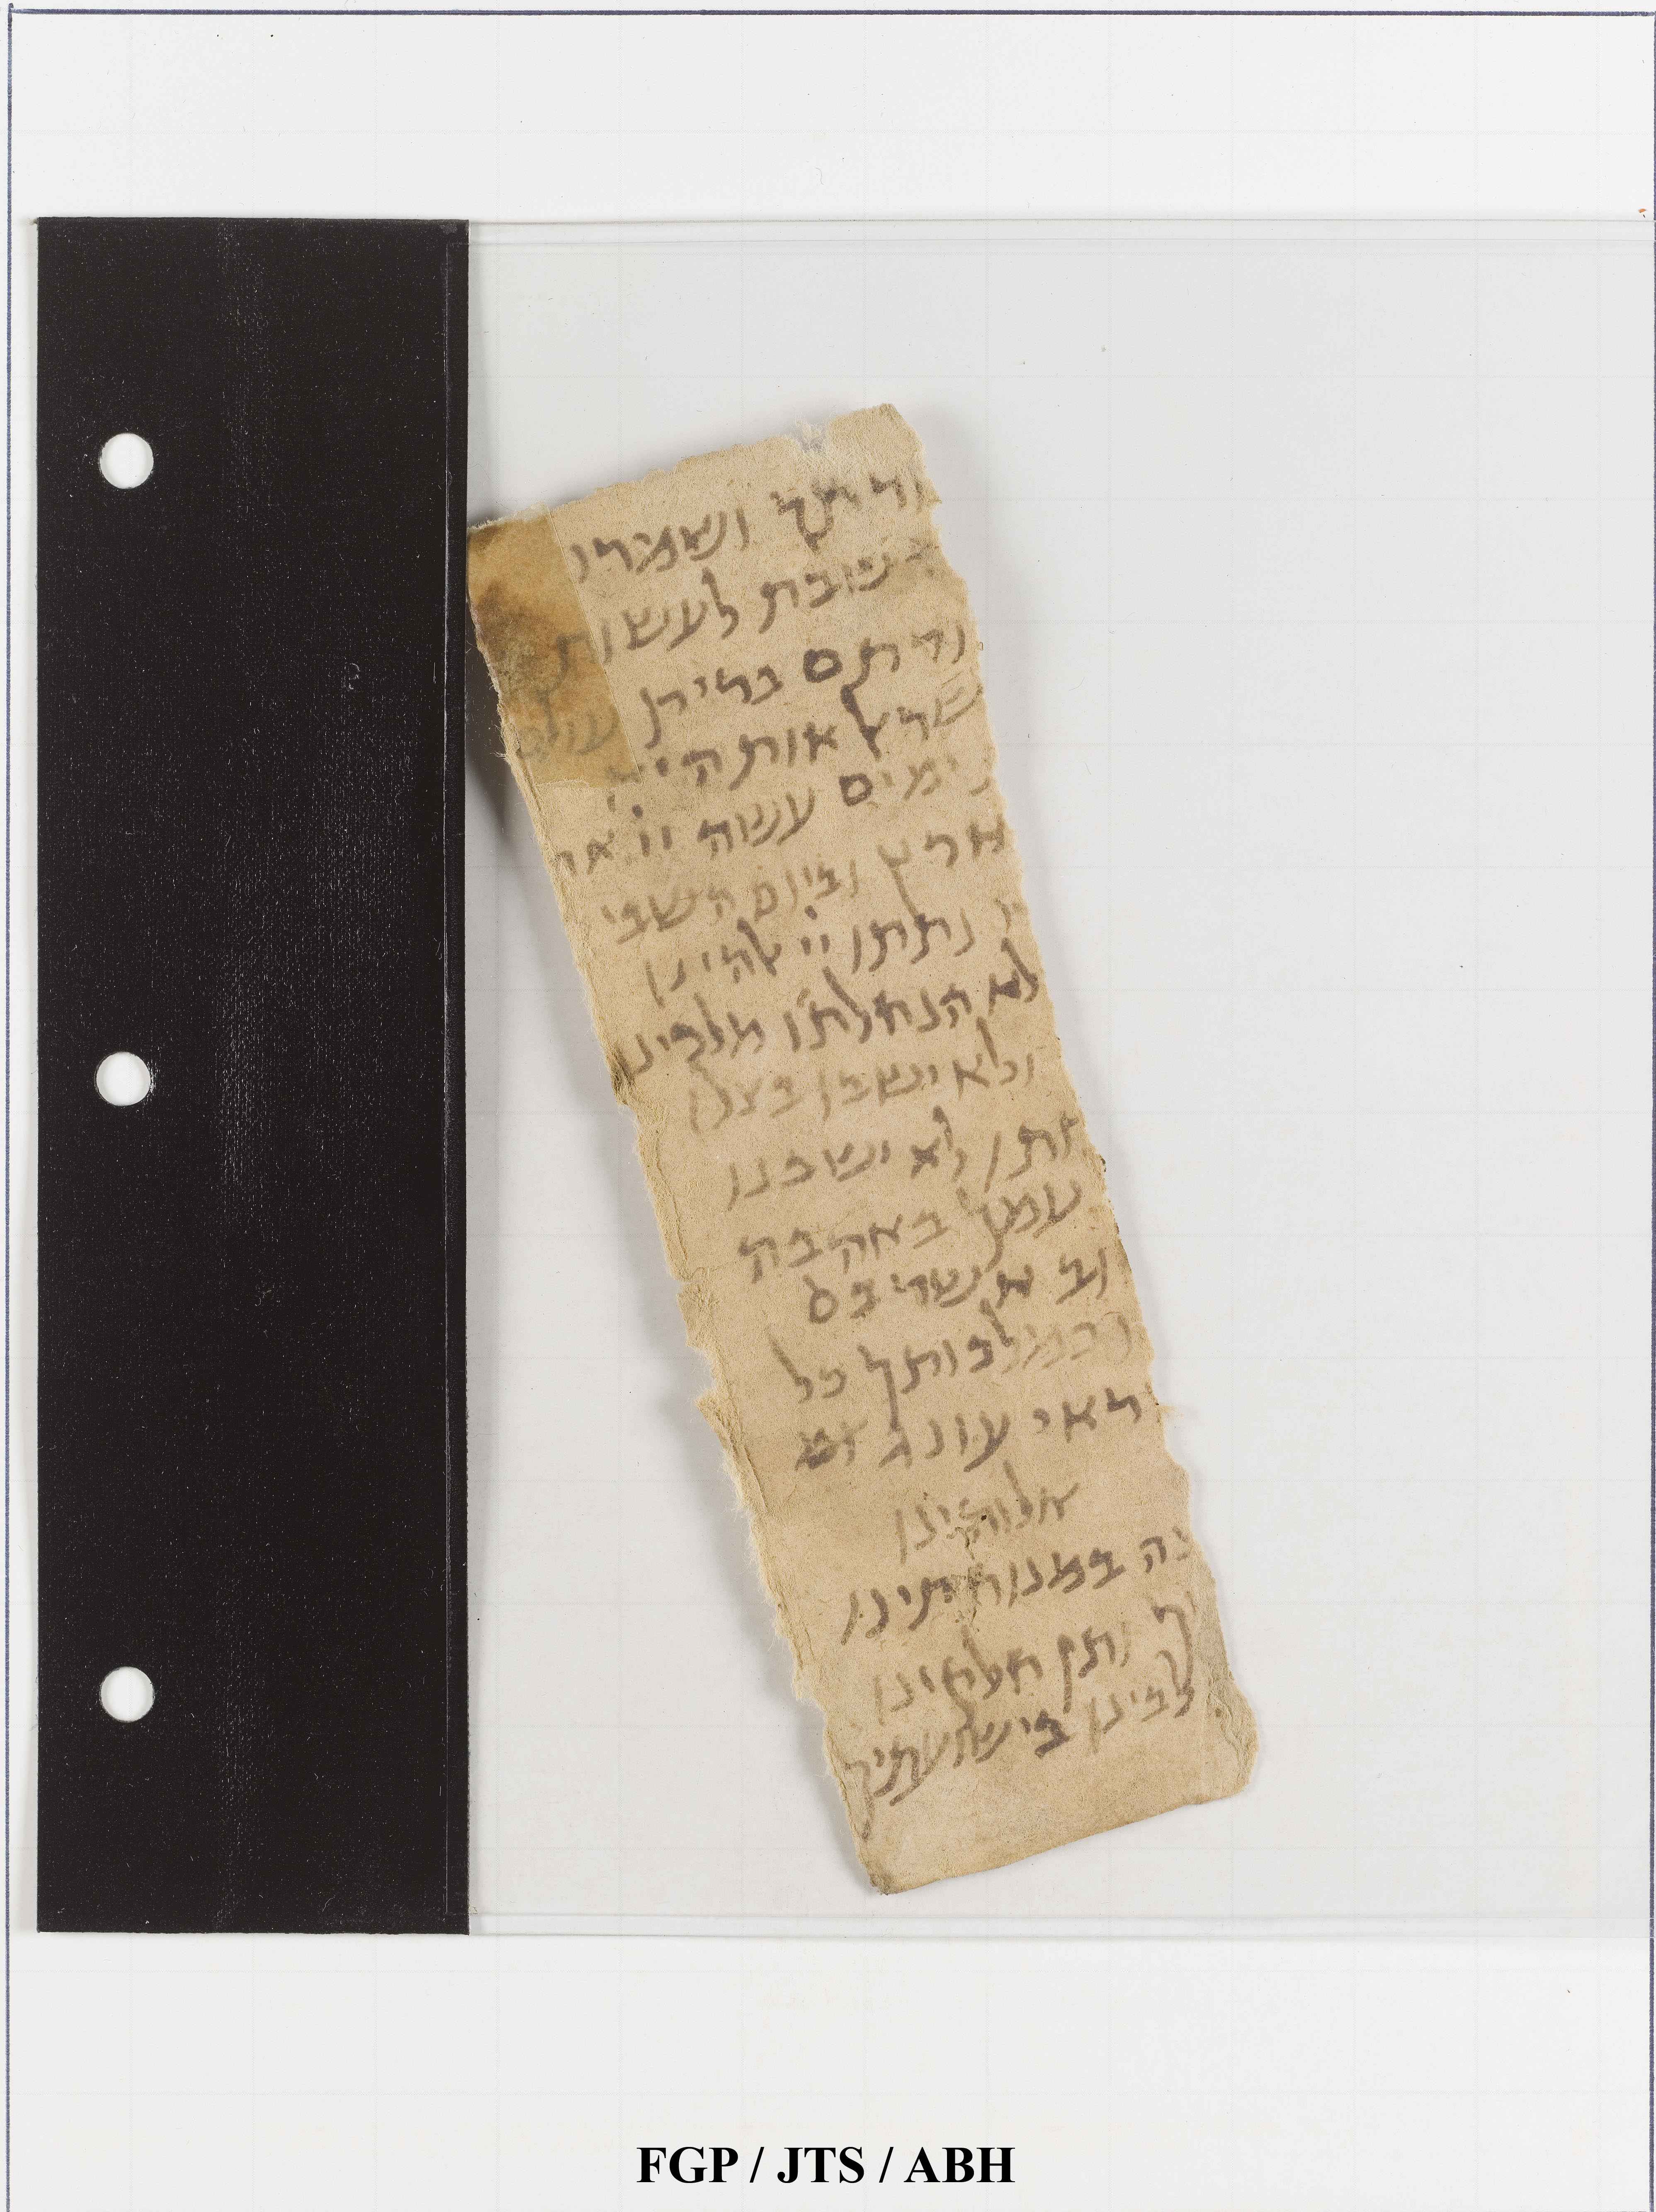 ורתך ושמרו
שבת לעשות
ודתם ברירן עולם
שראל אות היא
ימים עשה ייי את
ארץ וביום השבי
נתתו ייי אלהינו
לא הנחלתו מלכינו
ולא ישבו בצלו
תתו לא ישכנו
עמך באהבה
וב אשר בם
ובמלכותך כל
ראי עונג
אלוהינו
צה במנוחתינו
יך ותן חלקינו
לבינו בישועתיך
FGP / JTS / ABH